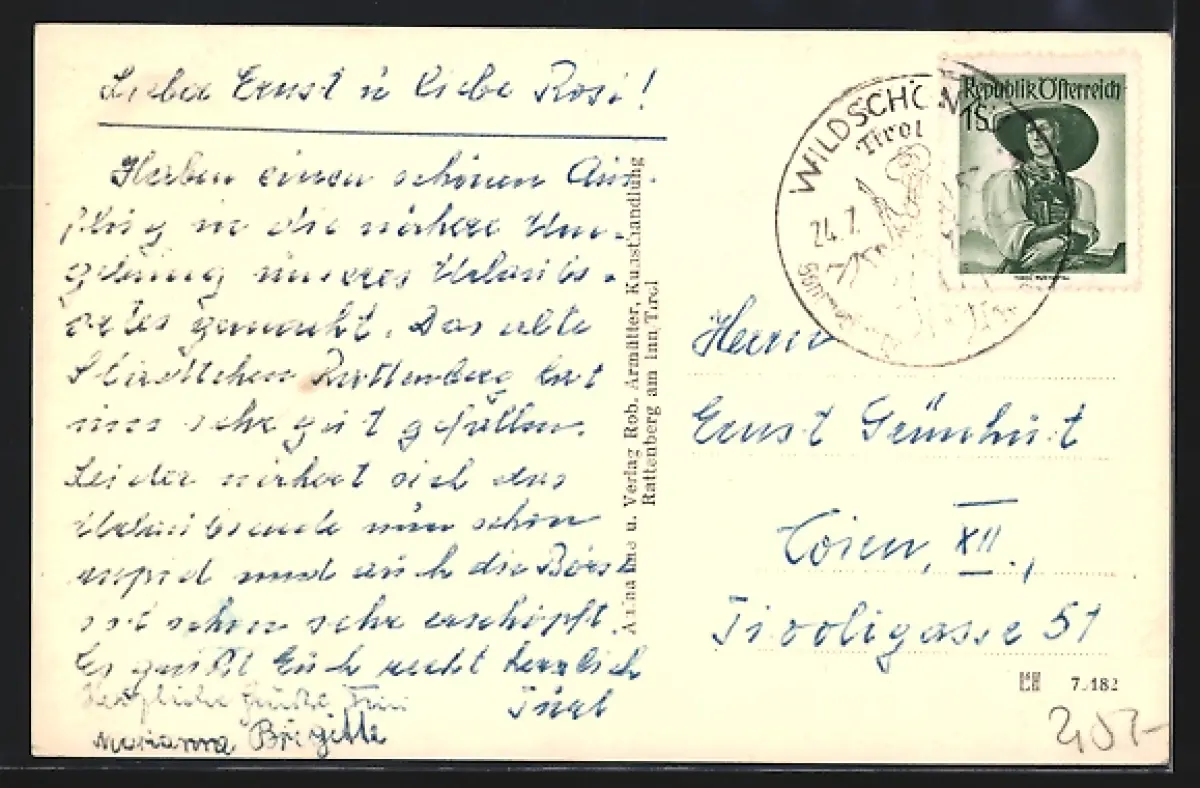 Lieber Ernst u liebe Rosi!
Haben einen schönen Aus-
flug in die nähere Um-
gebung unseres Urlaubs-
ortes gemacht. Das alte
Städtchen Rattenberg hat
uns sehr gut gefallen.
Leider nähert sich das
Urlaubsende nun schon
rapid und auch die Börse
ist schon sehr erschöpft.
Es grüßt Euch recht herzlich
Herzliche Grüße
Marianne Brigitte
Aufnahme u. Verlag Rob. Armütter, Kunsthandlung
Rattenberg am Inn, Tirol
WILDSCHÖNAU
Tirol
24. 7.
Republik Österreich
1S
Herrn
Ernst Grünhut
Wien, XII.,
Tivoligasse 51